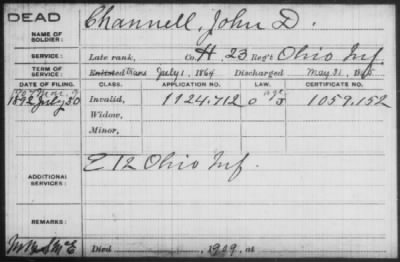 DEAD
NAME OF SOLDIER: Channell, John D.
SERVICE: Late rank, Co. H, 23 Reg't Ohio Inf.
TERM OF SERVICE: Enlisted trans July 1, 1864 Discharged May 31, 1865
DATE OF FILING. CLASS. APPLICATION NO. LAW. CERTIFICATE NO.
1907 Mar. age
1892 July 30 Invalid, 1124.712 1059.152
Widow,
Minor,
ADDITIONAL SERVICES: E 12 Ohio Inf.
REMARKS:
Died 1909, at